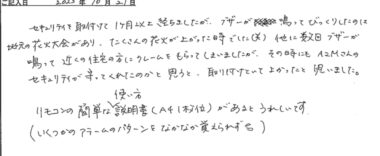 ご記入日 2023年10月21日
セキュリティを取付けて1ヶ月以上経ちましたが、ブザーが鳴ってびっくりしたのは
地元の花火大会があり、たくさんの花火が上がった時でした(笑) 他に数回ブザーが
鳴って近くの住宅の方にクレームをもらってしまいましたが、その時にもA2Mさんの
セキュリティが守ってくれたのかと思うと、取り付けていて良かったと思いました。
使い方
リモコンの簡単な説明書(A4 1枚位)があるとうれしいです
(いくつかのアラームのパターンをなかなか覚えられず